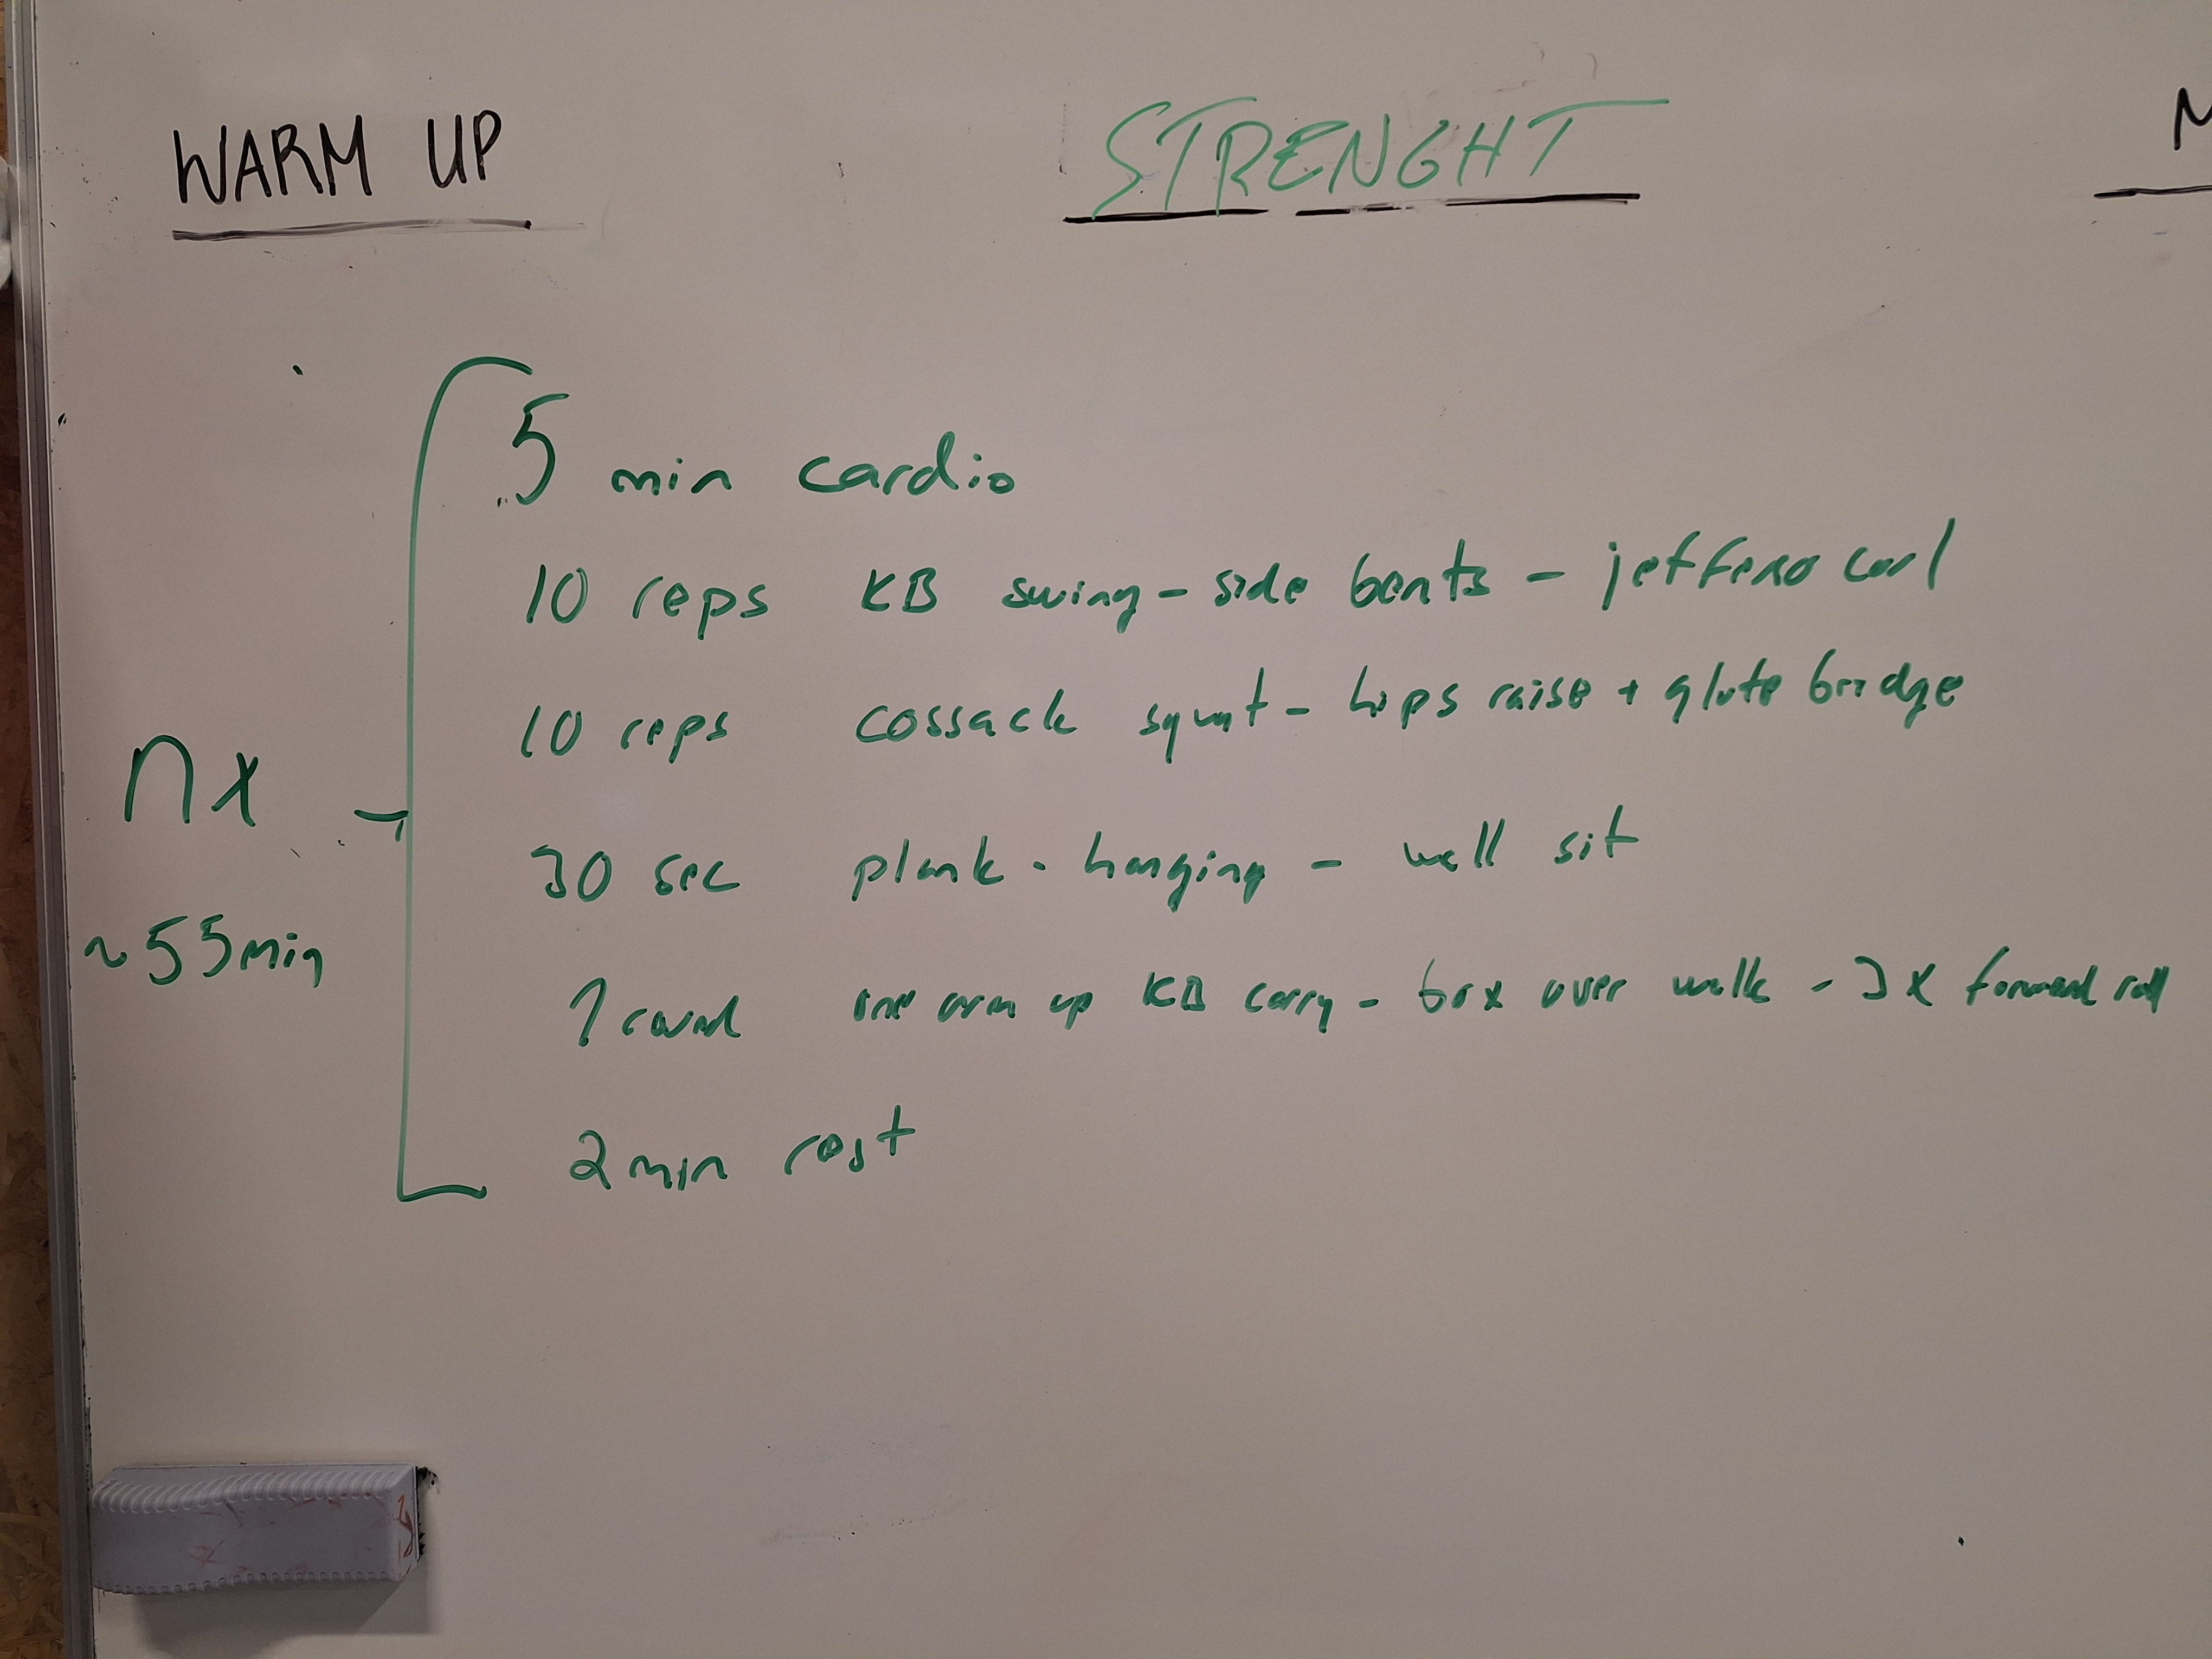 WARM UP
STRENGHT
5 min cardio
10 reps KB swing - side bents - jefferso curl
10 reps cossack squat - hips raise + glute bridge
nx
30 sec plank - hanging - wall sit
~55min
1 round one arm up KB carry - box over walk - 3x forward roll
2 min rest